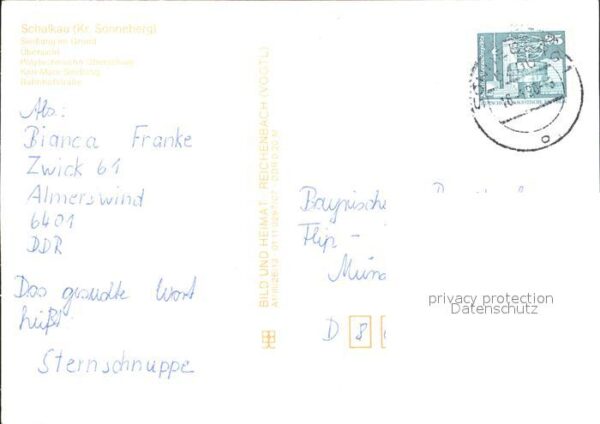 Schalkau (Kr. Sonneberg)
Siedlung im Grund
Übersicht
Polytechnische Oberschule
Karl-Marx-Siedlung
Bahnhofstraße
Abs.:
Bianca Franke
Zwick 61
Almerswind
6401
DDR
Das gesuchte Wort
heißt
Sternschnuppe
BILD UND HEIMAT REICHENBACH (VOGTL)
Bayrische
Flip -
Mün
D 8
privacy protection
Datenschutz